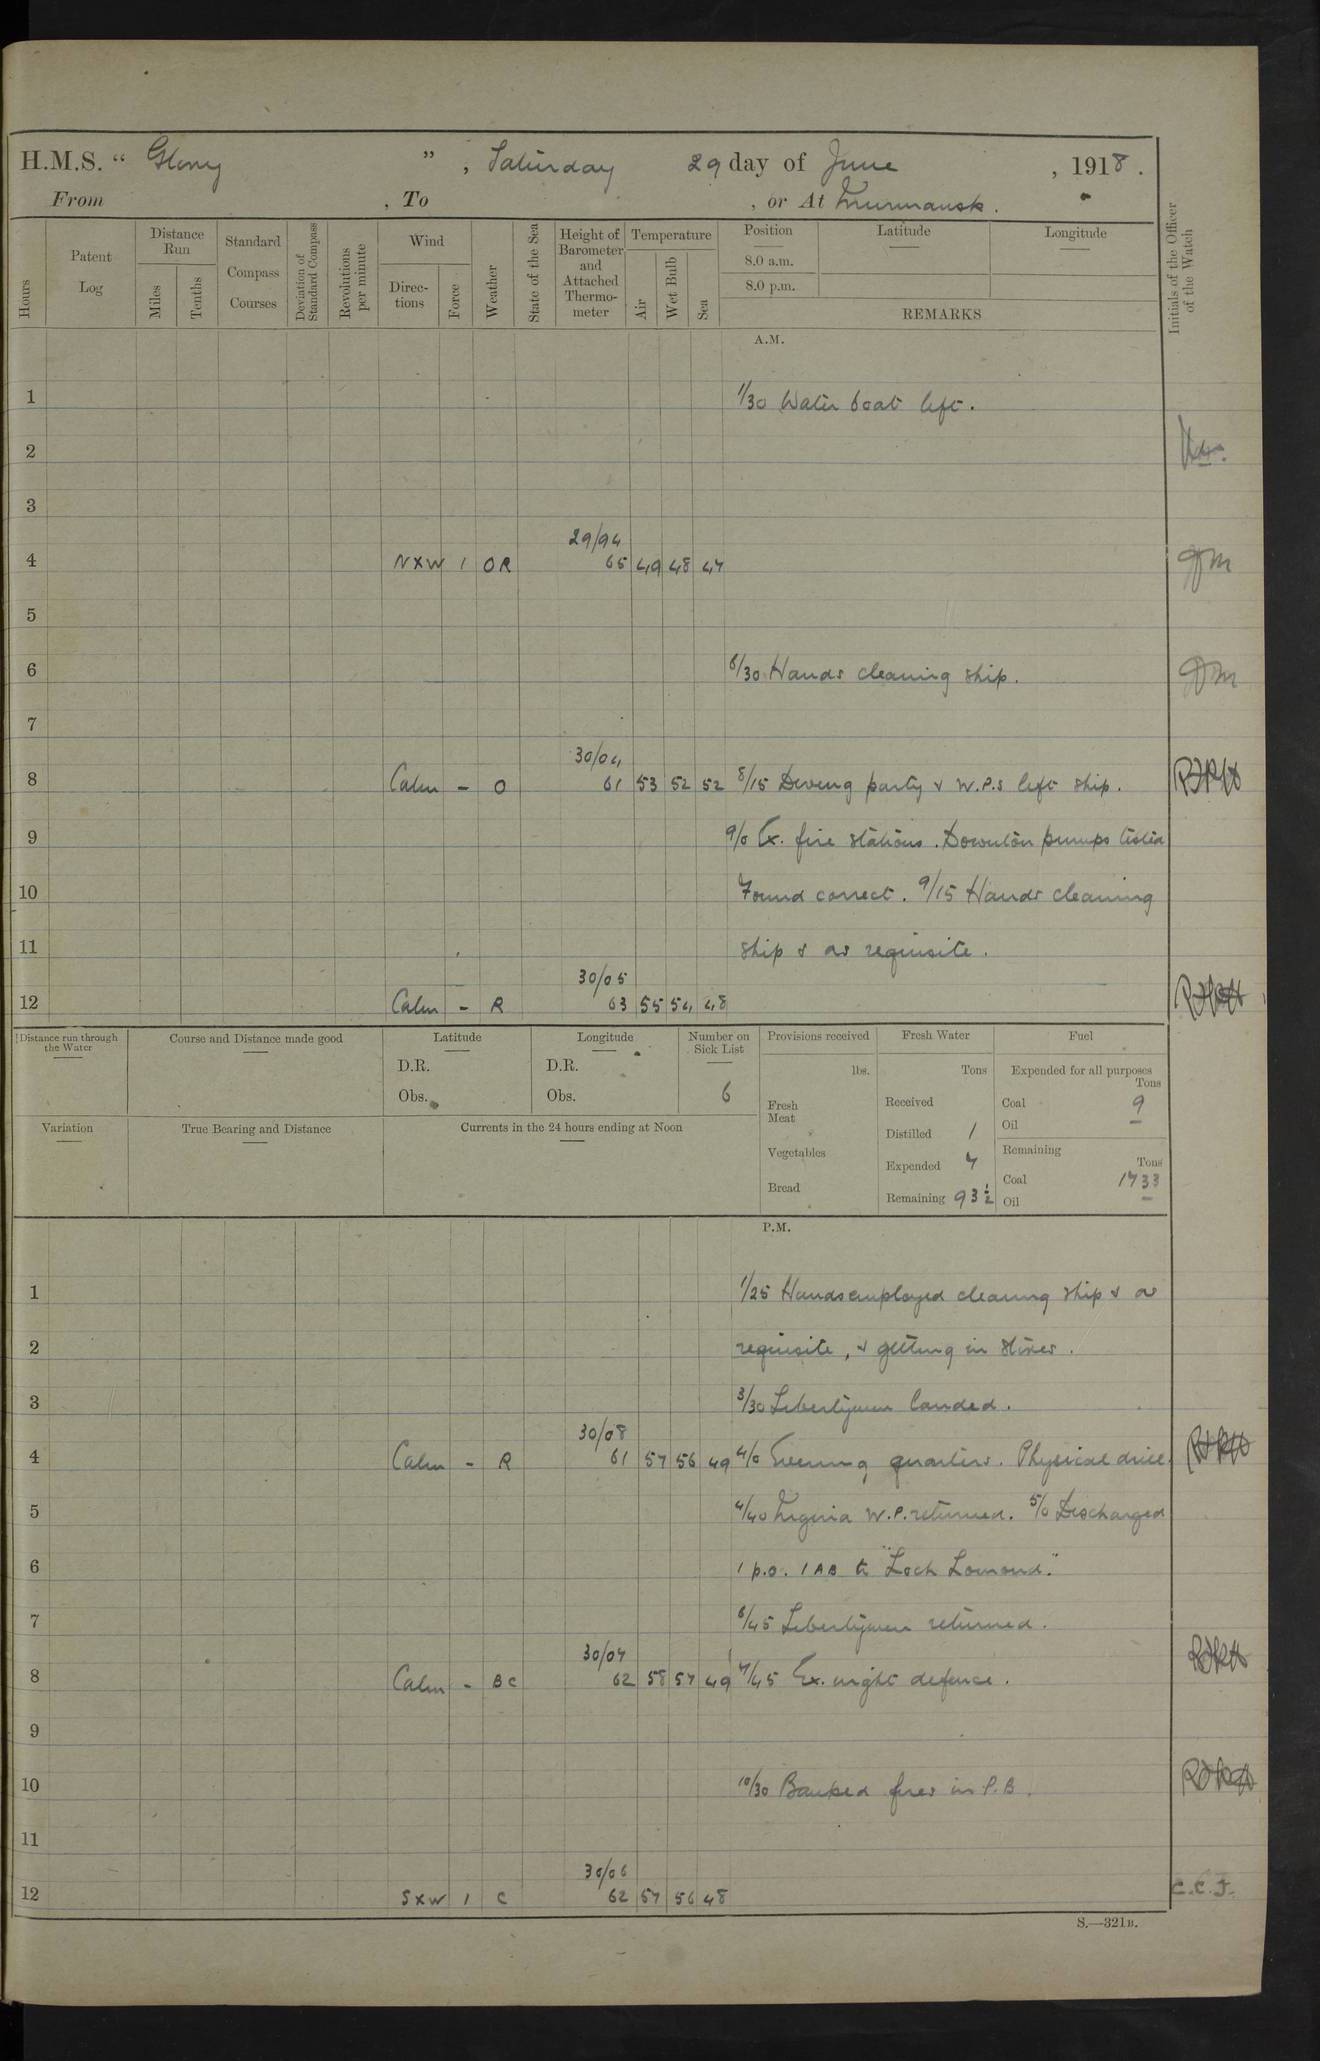 H.M.S. “ Glory ” , Saturday 29 day of June , 1918 .
From , To , or At Murmansk .
Hours
Patent Log
Distance Run
Miles
Tenths
Standard Compass Courses
Deviation of Standard Compass
Revolutions per minute
Wind
Direc-tions
Force
Weather
State of the Sea
Height of Barometer and Attached Thermo-meter
Temperature
Air
Wet Bulb
Sea
Position
8.0 a.m.
8.0 p.m.
Latitude
Longitude
REMARKS
Initials of the Officer of the Watch
A.M.
1 1/30 Water boat left.
2
3
29/94
4 NXW 1 OR 65 49 48 47
5
6 6/30 Hands cleaning ship.
7
30/04
8 Calm - O 61 53 52 52 8/15 Diving party & W.P.s left ship.
9 9/0 Ex. fire stations. Downton pumps tested
10 Found correct. 9/15 Hands cleaning
11 ship & as requisite.
30/05
12 Calm - R 63 55 54 48
Distance run through the Water
Course and Distance made good
Latitude
D.R.
Obs.
Longitude
D.R.
Obs.
Number on Sick List
6
Provisions received
lbs.
Fresh Meat
Vegetables
Bread
Fresh Water
Tons
Received
Distilled 1
Expended 7
Remaining 93½
Fuel
Expended for all purposes
Tons
Coal 9
Oil -
Remaining
Tons
Coal 1733
Oil -
Variation
True Bearing and Distance
Currents in the 24 hours ending at Noon
P.M.
1 1/25 Hands employed cleaning ship & as
2 requisite, & getting in stores.
3 3/30 Libertymen landed.
30/08
4 Calm - R 61 57 56 49 4/0 Evening quarters. Physical drill.
5 4/40 Virginia W.P. returned. 5/0 Discharged
6 1 p.o. 1 AB to "Loch Lomond."
7 6/45 Libertymen returned.
30/07
8 Calm - BC 62 58 57 49 7/45 Ex. night defence.
9
10 10/30 Banked fires in P.B.
11
30/06
12 SXW 1 C 62 57 56 48 C.C.F.
S.—321B.